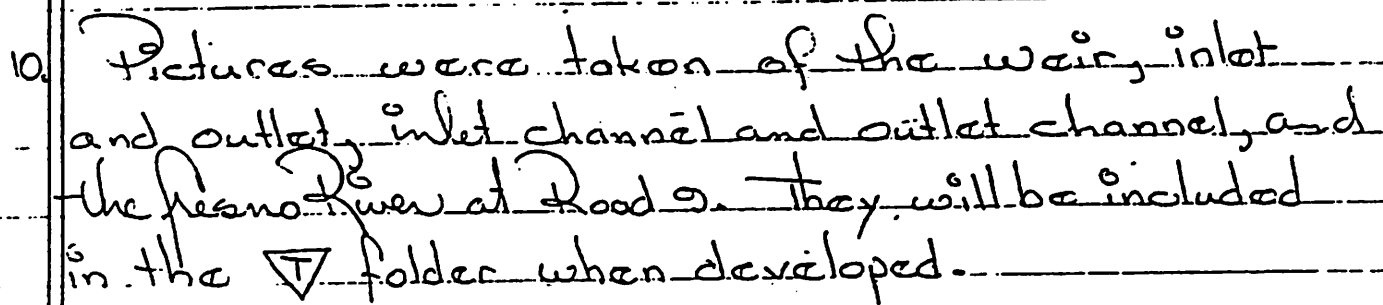 10. Pictures were taken of the weir, inlet
and outlet, inlet channel and outlet channel, and
the Fresno River at Road 9. They will be included
in the T folder when developed.